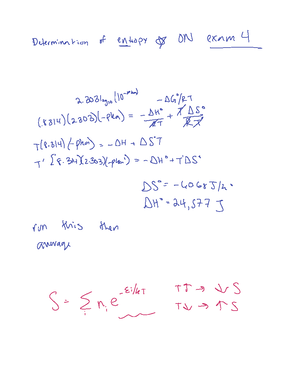 Determination of entropy ON exam 4
2.303 log₁₀(10^-pKa) -ΔG°/RT
(8.314)(2.303)(-pKa) = -ΔH°/RT + TΔS°/RT
T(8.314)(-pKa) = -ΔH + ΔS°T
T' [8.314(2.303)(-pKa°) = -ΔH° + TΔS°
ΔS° = -60.68 J/
ΔH° = 24,577 J
run this then
average
S = Σ nᵢ e^-εi/kT T↑ → ↓ S
T↓ → ↑ S